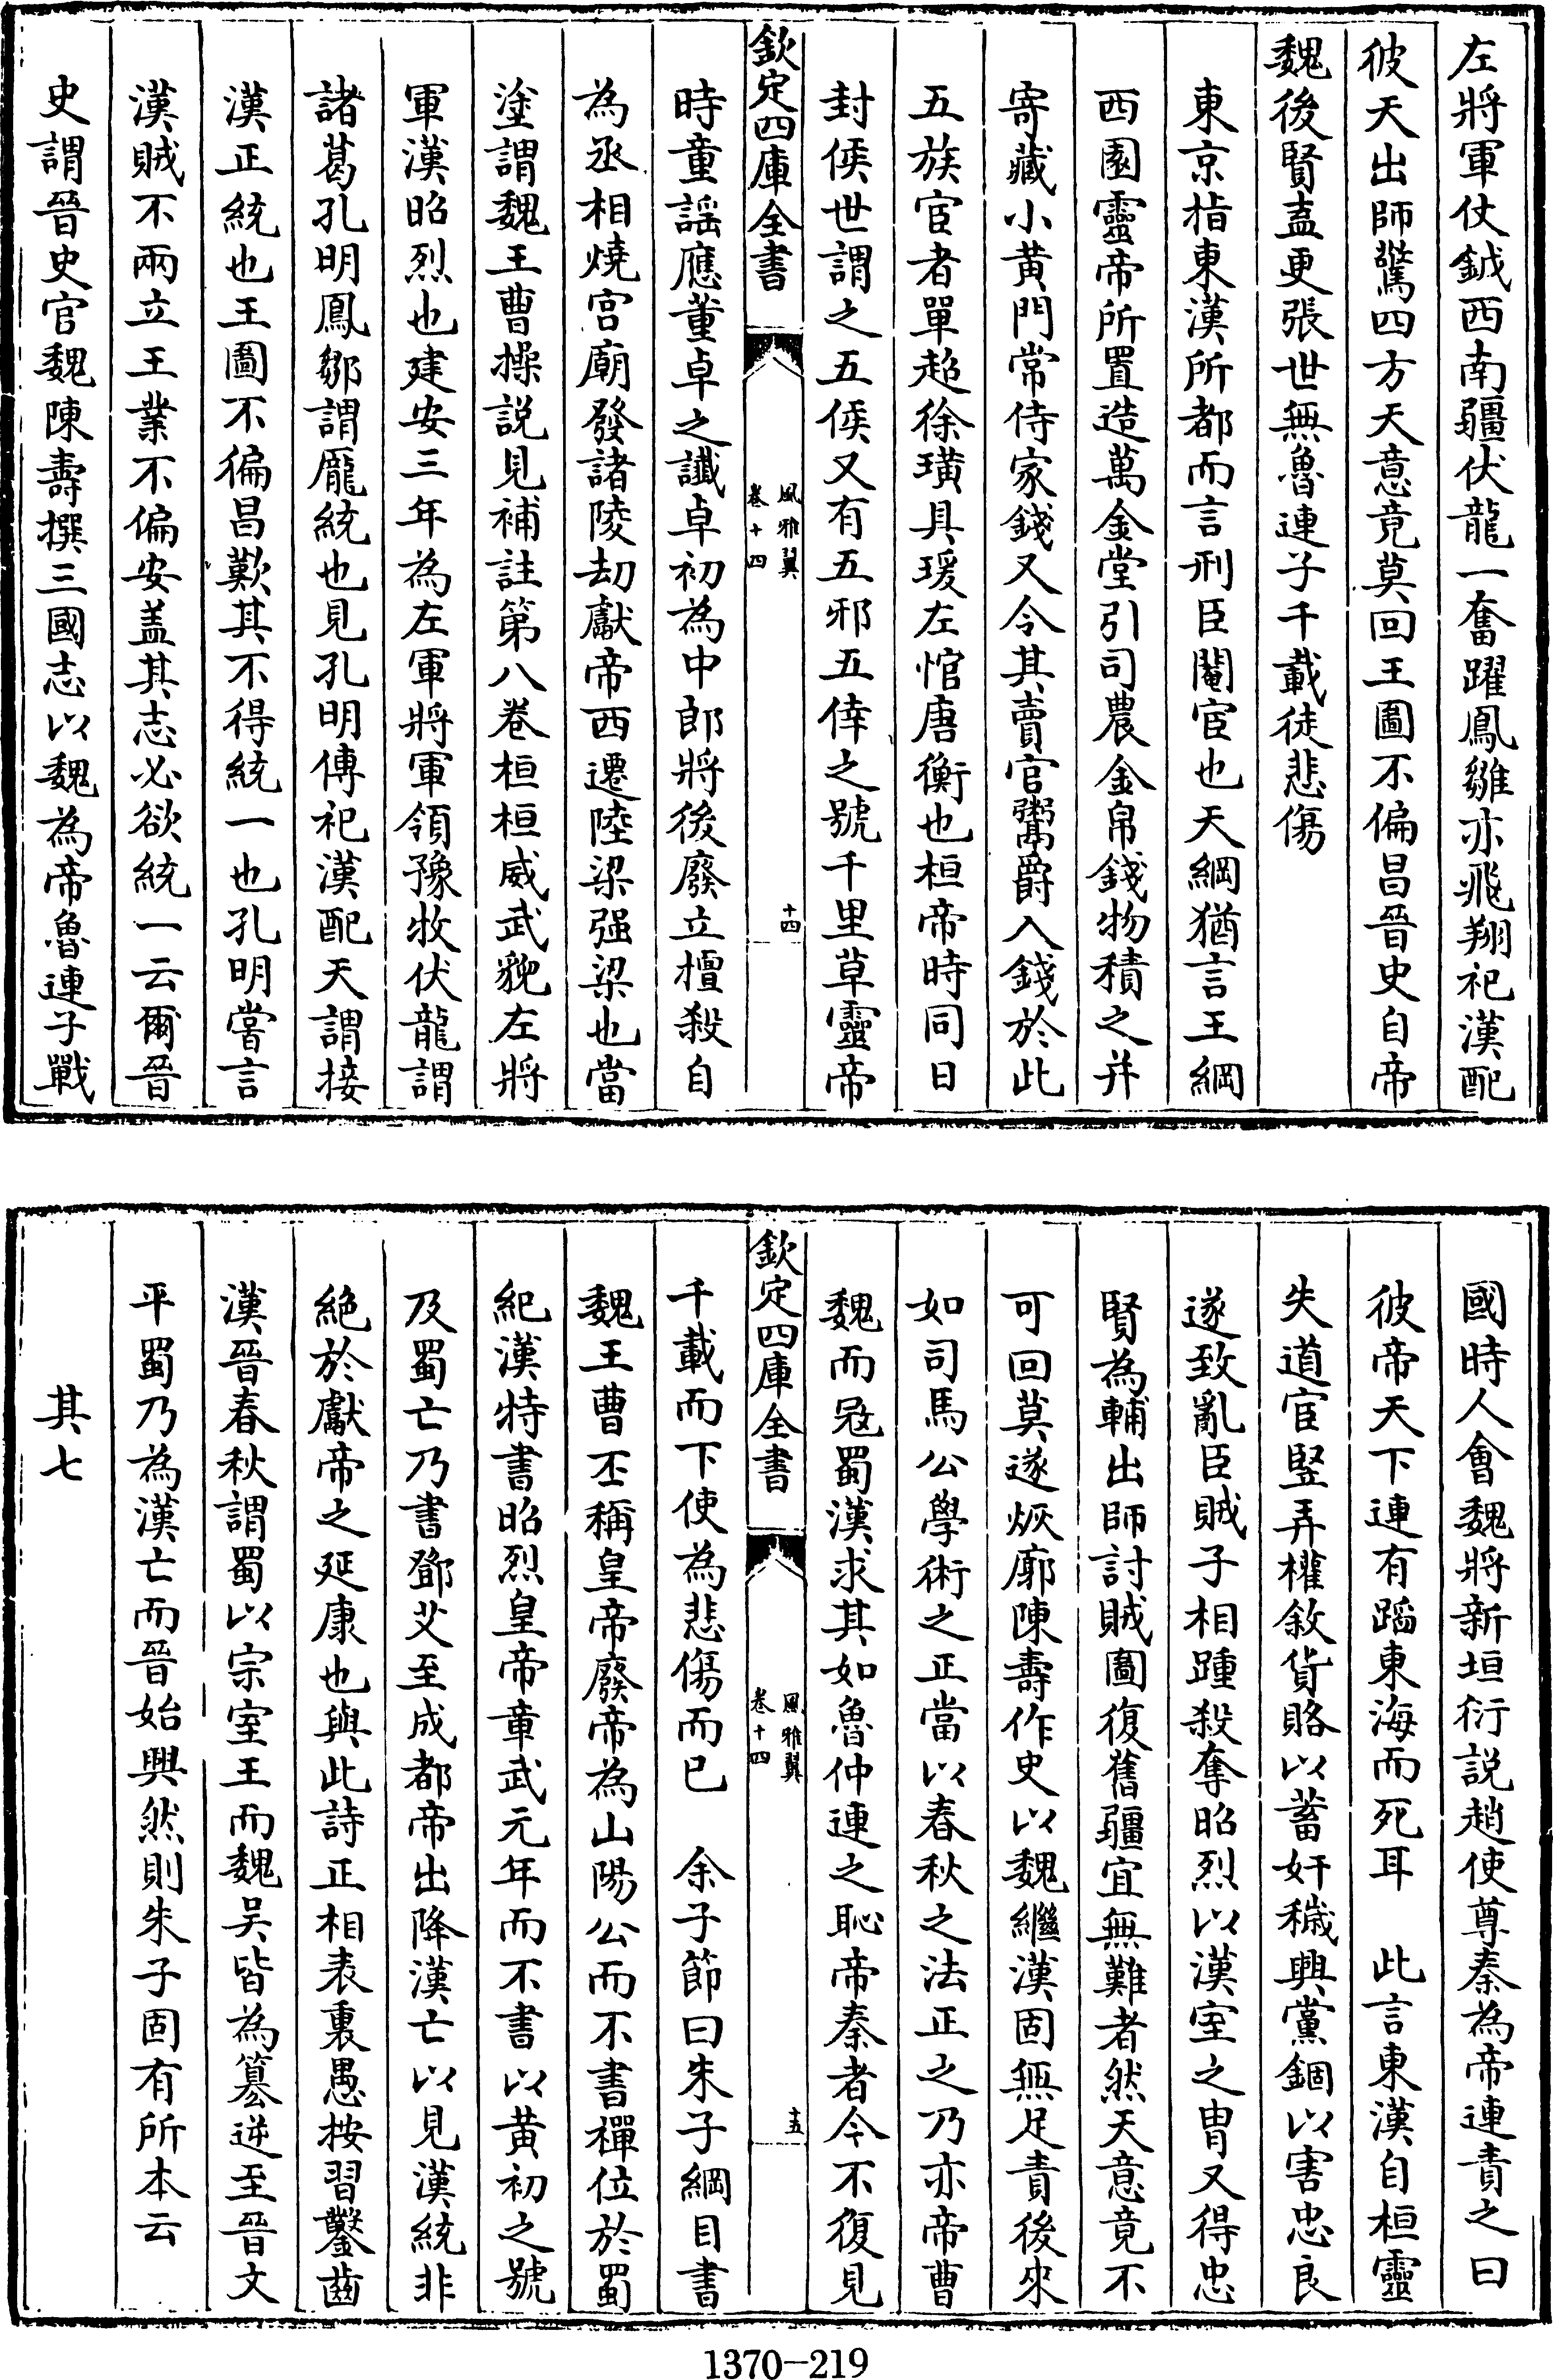 左將軍仗鉞西南疆伏龍一奮躍鳳雛亦飛翔祀漢配
彼天出師驚四方天意竟莫回王圖不偏昌晉史自帝
魏後賢盍更張世無魯連子千載徒悲傷
東京指東漢所都而言刑臣閹宦也天綱猶言王綱
西園靈帝所置造萬金堂引司農金帛錢物積之并
寄藏小黃門常侍家錢又令其賣官鬻爵入錢於此
五族宦者單超徐璜具瑗左悺唐衡也桓帝時同日
封侯世謂之五侯又有五邪五倖之號千里草靈帝
欽定四庫全書
風雅翼
卷十四
十四
時童謡應董卓之讖卓初為中郎將後廢立檀殺自
為丞相燒宮廟發諸陵刼獻帝西遷陸梁强梁也當
塗謂魏王曹操説見補註第八卷桓桓威武貌左將
軍漢昭烈也建安三年為左軍將軍領豫牧伏龍謂
諸葛孔明鳳鄒謂龐統也見孔明傳祀漢配天謂接
漢正統也王圖不徧昌歎其不得統一也孔明嘗言
漢賊不兩立王業不偏安盖其志必欲統一云爾晉
史謂晉史官魏陳壽撰三國志以魏為帝魯連子戰
國時人會魏將新垣衍説趙使尊秦為帝連責之曰
彼帝天下連有蹈東海而死耳　此言東漢自桓靈
失道宦竪弄權斂貨賂以蓄奸穢興黨錮以害忠良
遂致亂臣賊子相踵殺奪昭烈以漢室之胄又得忠
賢為輔出師討賊圖復舊疆宜無難者然天意竟不
可回莫遂恢廓陳壽作史以魏繼漢固無足責後來
如司馬公學術之正當以春秋之法正之乃亦帝曹
魏而冦蜀漢求其如魯仲連之恥帝秦者今不復見
欽定四庫全書
風雅翼
卷十四
十五
千載而下使為悲傷而已　余子節曰朱子綱目書
魏王曹丕稱皇帝廢帝為山陽公而不書禪位於蜀
紀漢特書昭烈皇帝章武元年而不書以黃初之號
及蜀亡乃書鄧艾至成都帝出降漢亡以見漢統非
絶於獻帝之延康也與此詩正相表裏愚按習鑿齒
漢晉春秋謂蜀以宗室王而魏吴皆為篡逆至晉文
平蜀乃為漢亡而晉始興然則朱子固有所本云
其七
1370-219